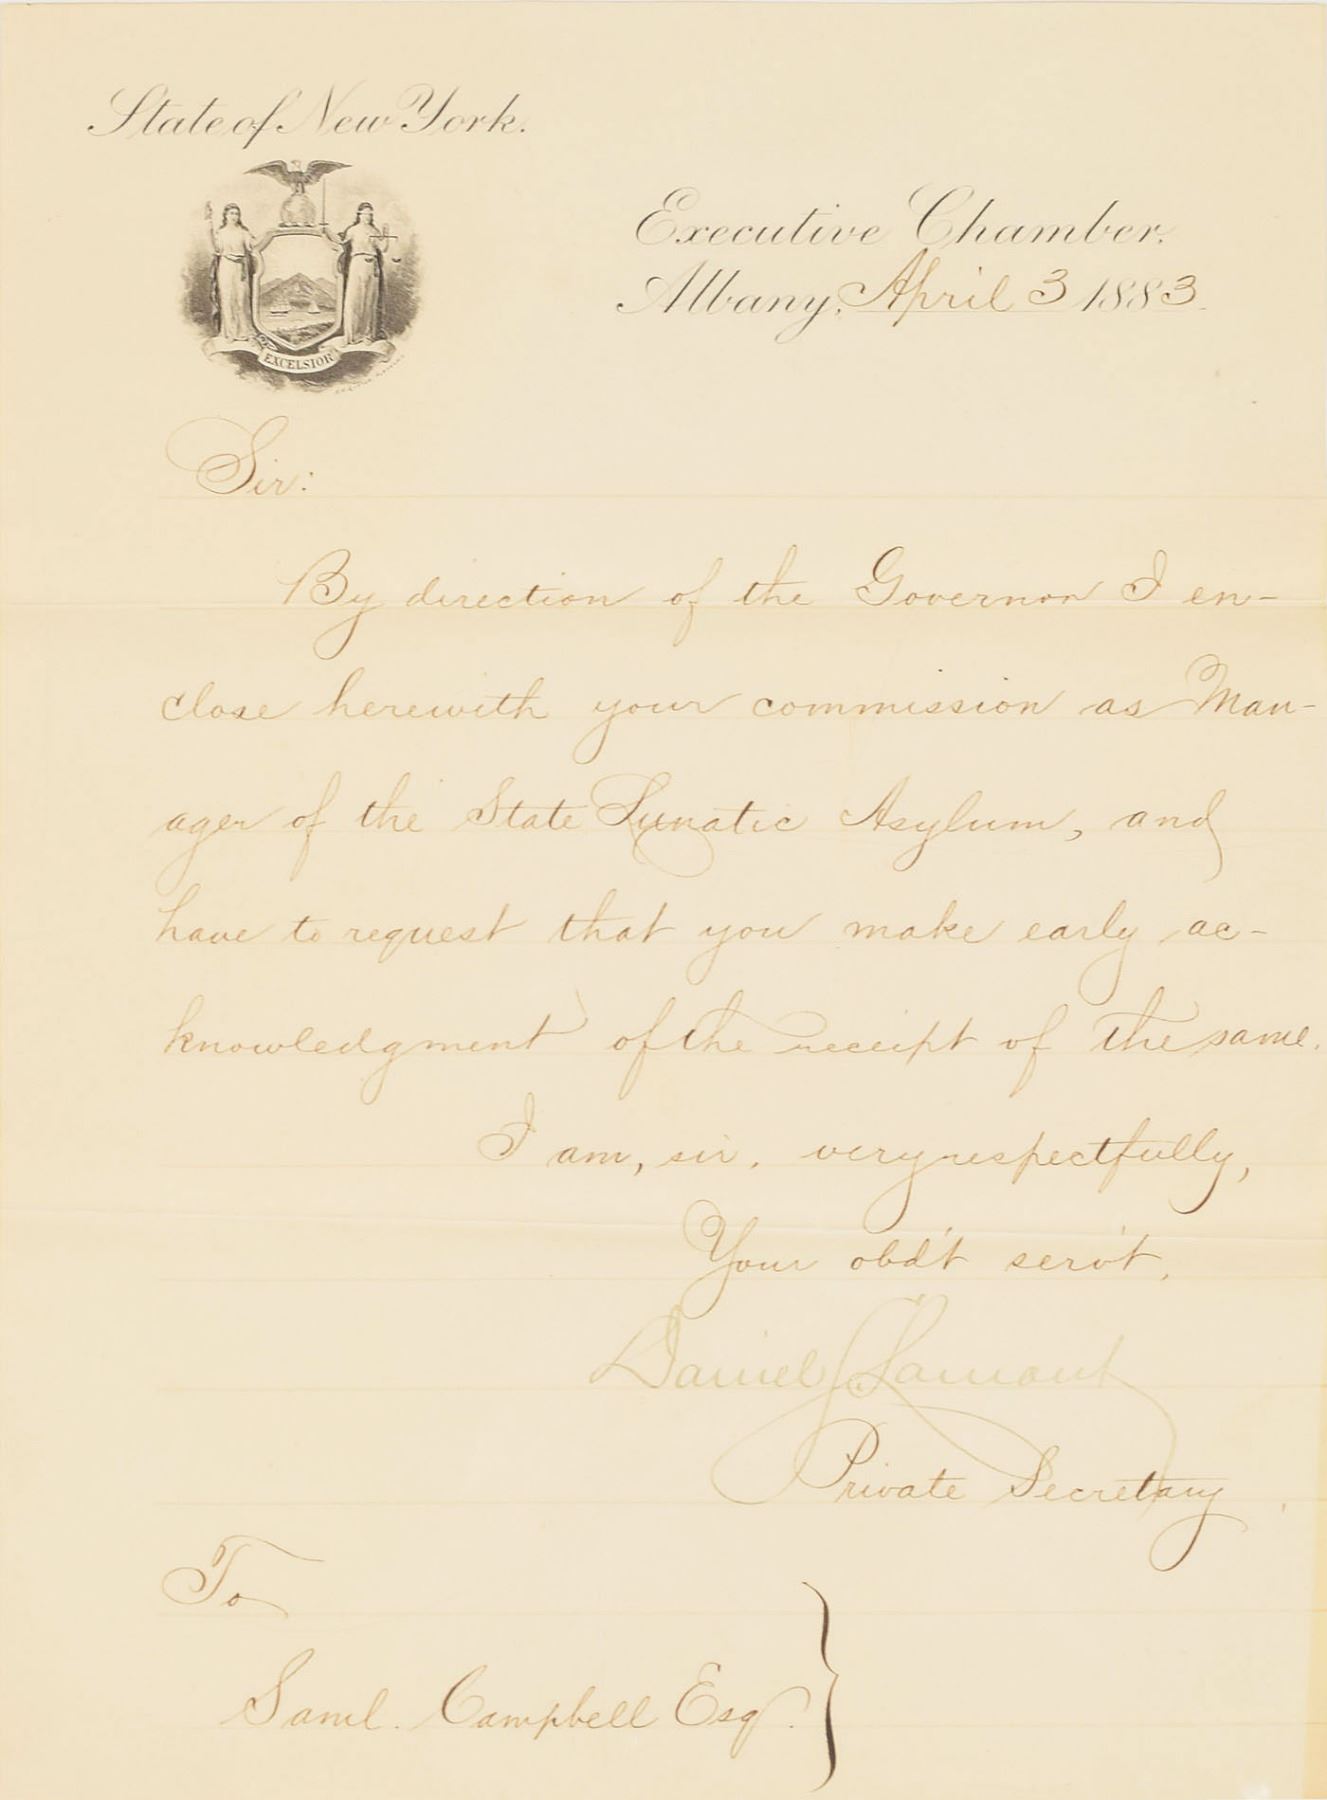 State of New York.
EXCELSIOR
Executive Chamber.
Albany, April 3 1883.
Sir:
By direction of the Governor I en-
close herewith your commission as Man-
ager of the State Lunatic Asylum, and
have to request that you make early ac-
knowledgment of the receipt of the same.
I am, sir, very respectfully,
Your obd't serv't,
Daniel S Lamont
Private Secretary
To
Saml. Campbell Esq.